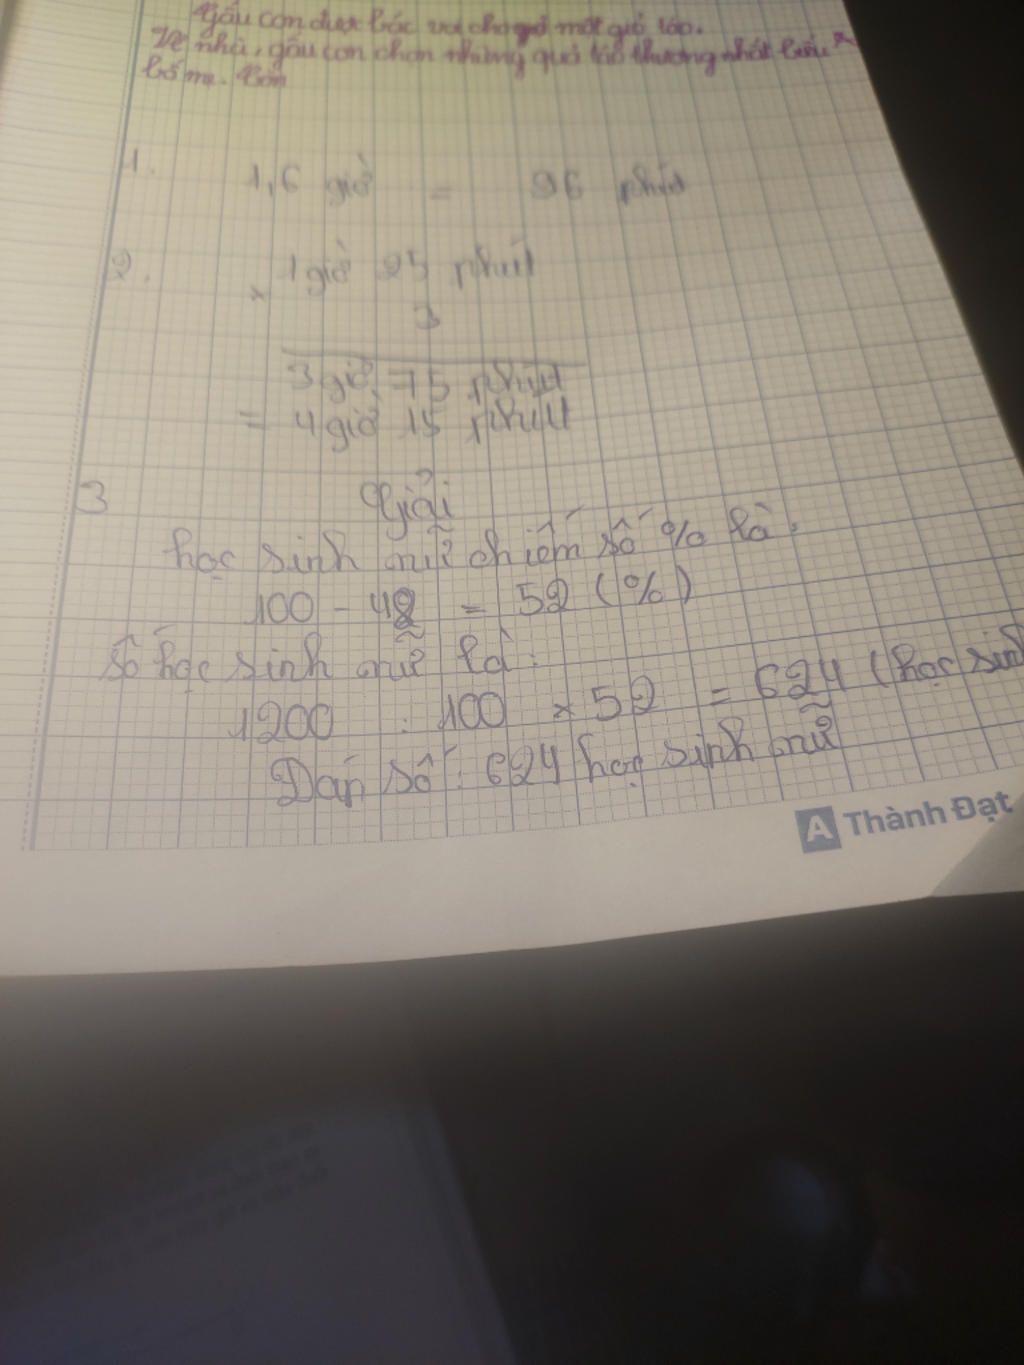 Gấu con được bác voi cho một giỏ táo.
Về nhà, gấu con chọn những quả táo thương nhất biếu
bố mẹ. Còn
1. 1,6 giờ = 96 phút
2. 1 giờ 25 phút
× 3
3 giờ 75 phút
= 4 giờ 15 phút
3 Giải
học sinh nữ chiếm số % là:
100 - 48 = 52 (%)
số học sinh nữ là:
1200 : 100 × 52 = 624 (học sinh
Đáp số: 624 học sinh nữ
A Thành Đạt